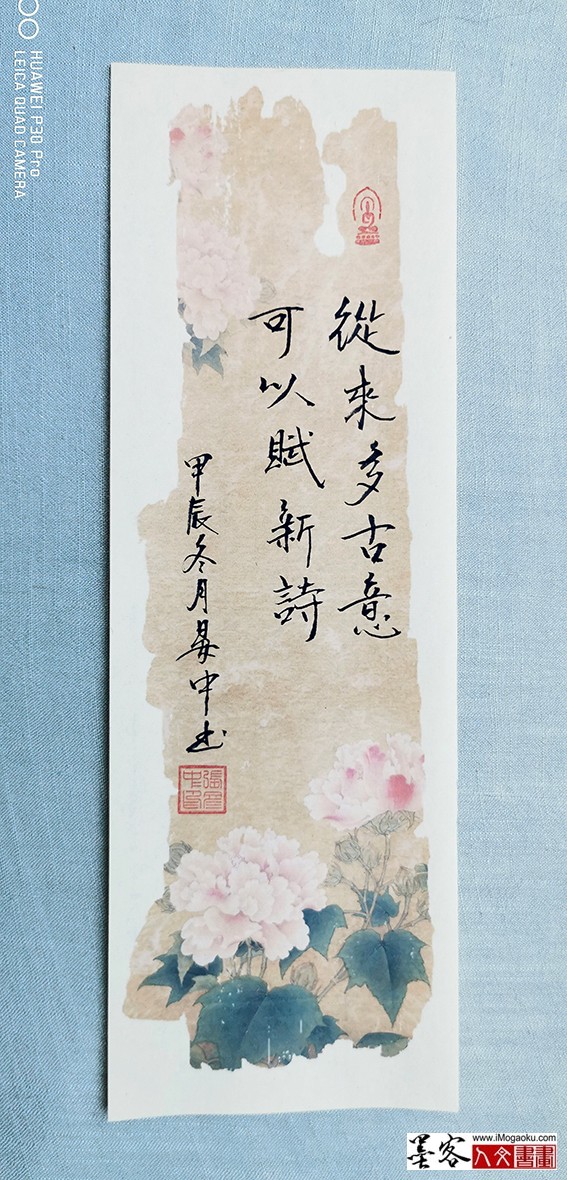 HUAWEI P30 Pro
LEICA QUAD CAMERA
從來多古意
可以賦新詩
甲辰冬月晏中书
張晏中印
墨客
www.iMogaoku.com
人文書畫